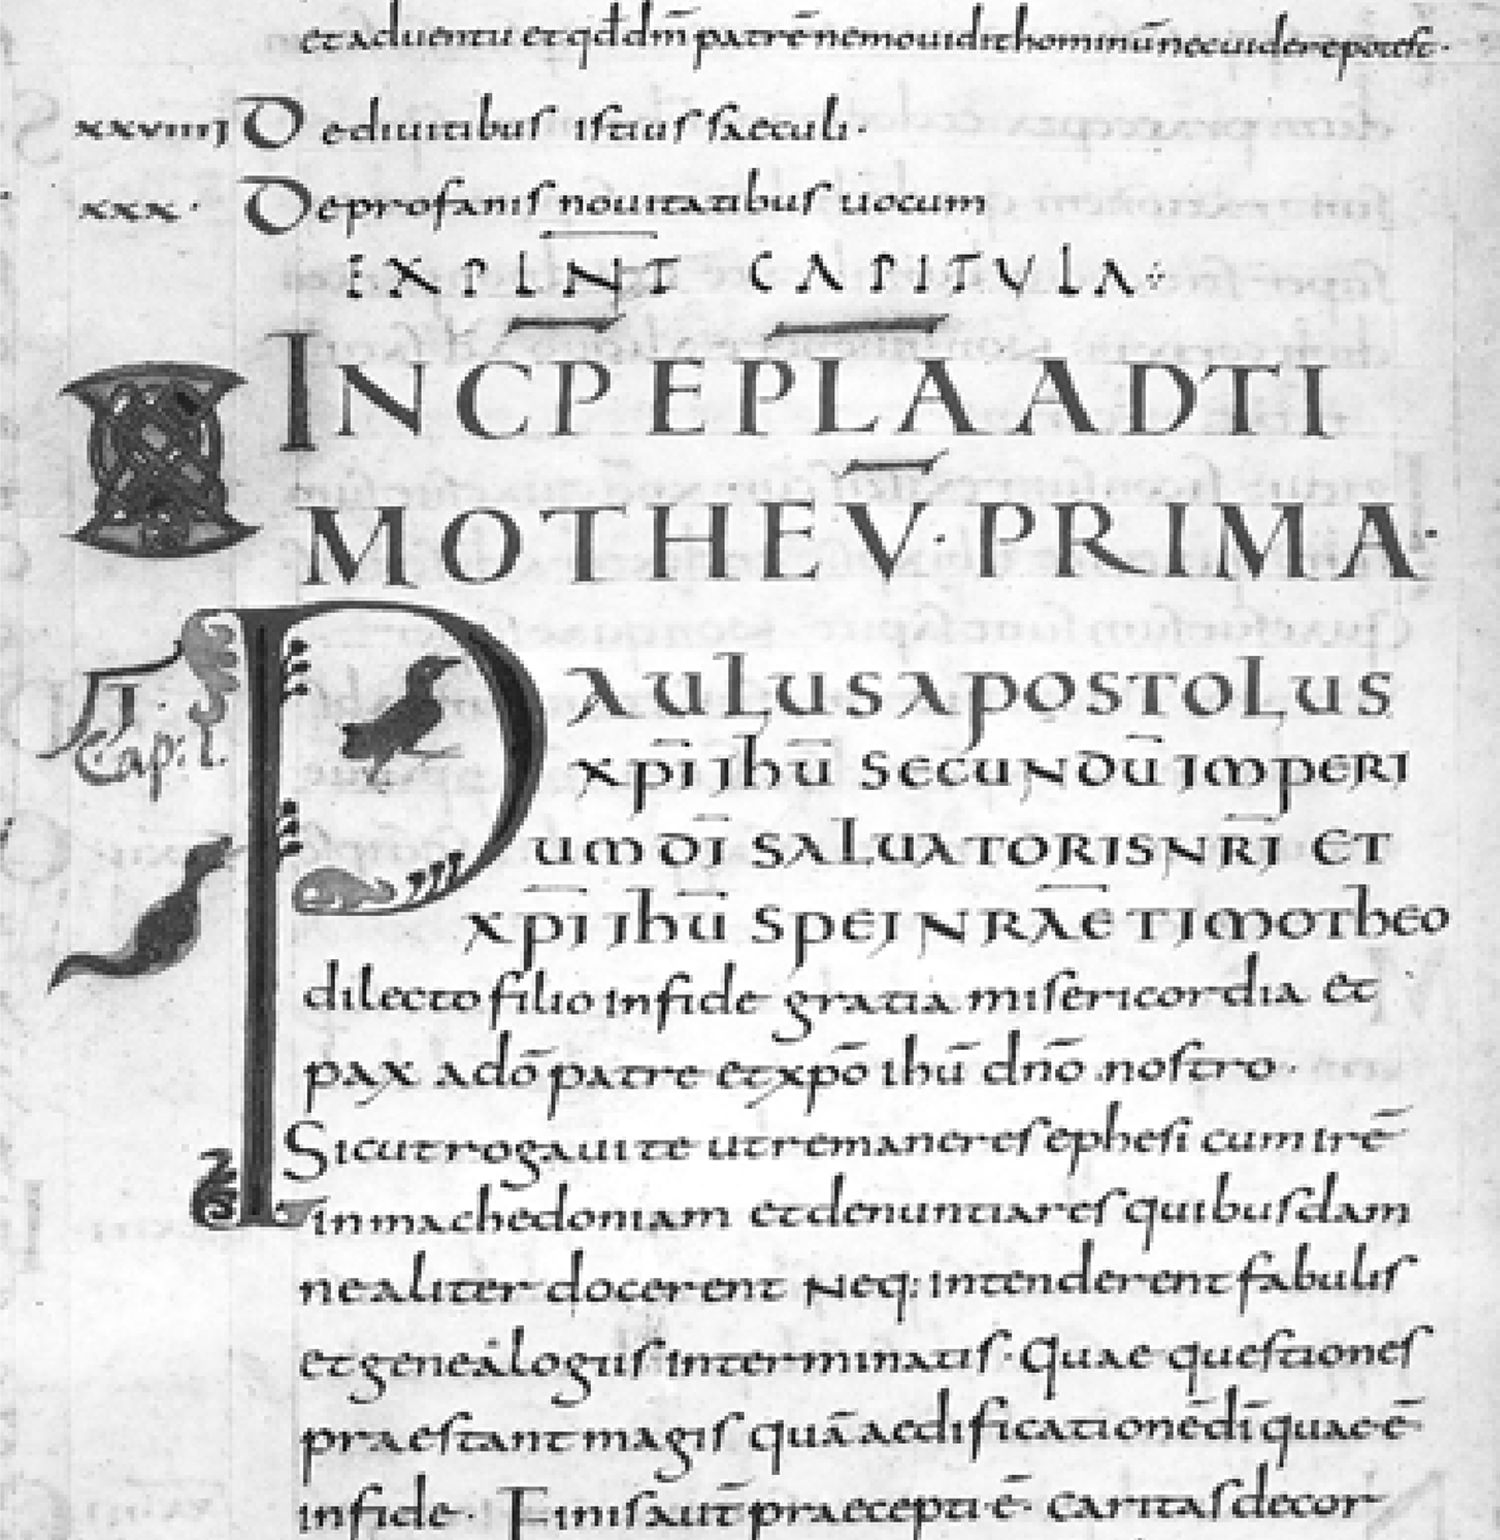 et aduentu et qđ dm̄ patrē nemo uidit hominū nec uidere potest·
xxviiii De diuitibus istius saeculi·
xxx· De profanis nouitatibus uocum
EXPLN̅T CAPITULA
INCP̅ EPL̅A AD TI
MOTHEV̅· PRIMA·
PAULUS APOSTOLUS
I· Cap: 1.
xp̄i ihū secundū imperi
um dī saluatoris nr̄i et
xp̄i ihū spei nrāe timotheo
dilecto filio in fide gratia misericordia et
pax a dō patre et xpō ihū dn̄o nostro·
Sicut rogaui te ut remaneres ephesi cum irē
in machedoniam et denuntiares quibusdam
ne aliter docerent Neq: intenderent fabulis
et genealogiis interminatis· Quae questiones
praestant magis quā aedificationē dī quae ē
in fide· Finis aut̄ praecepti ē caritas de cor